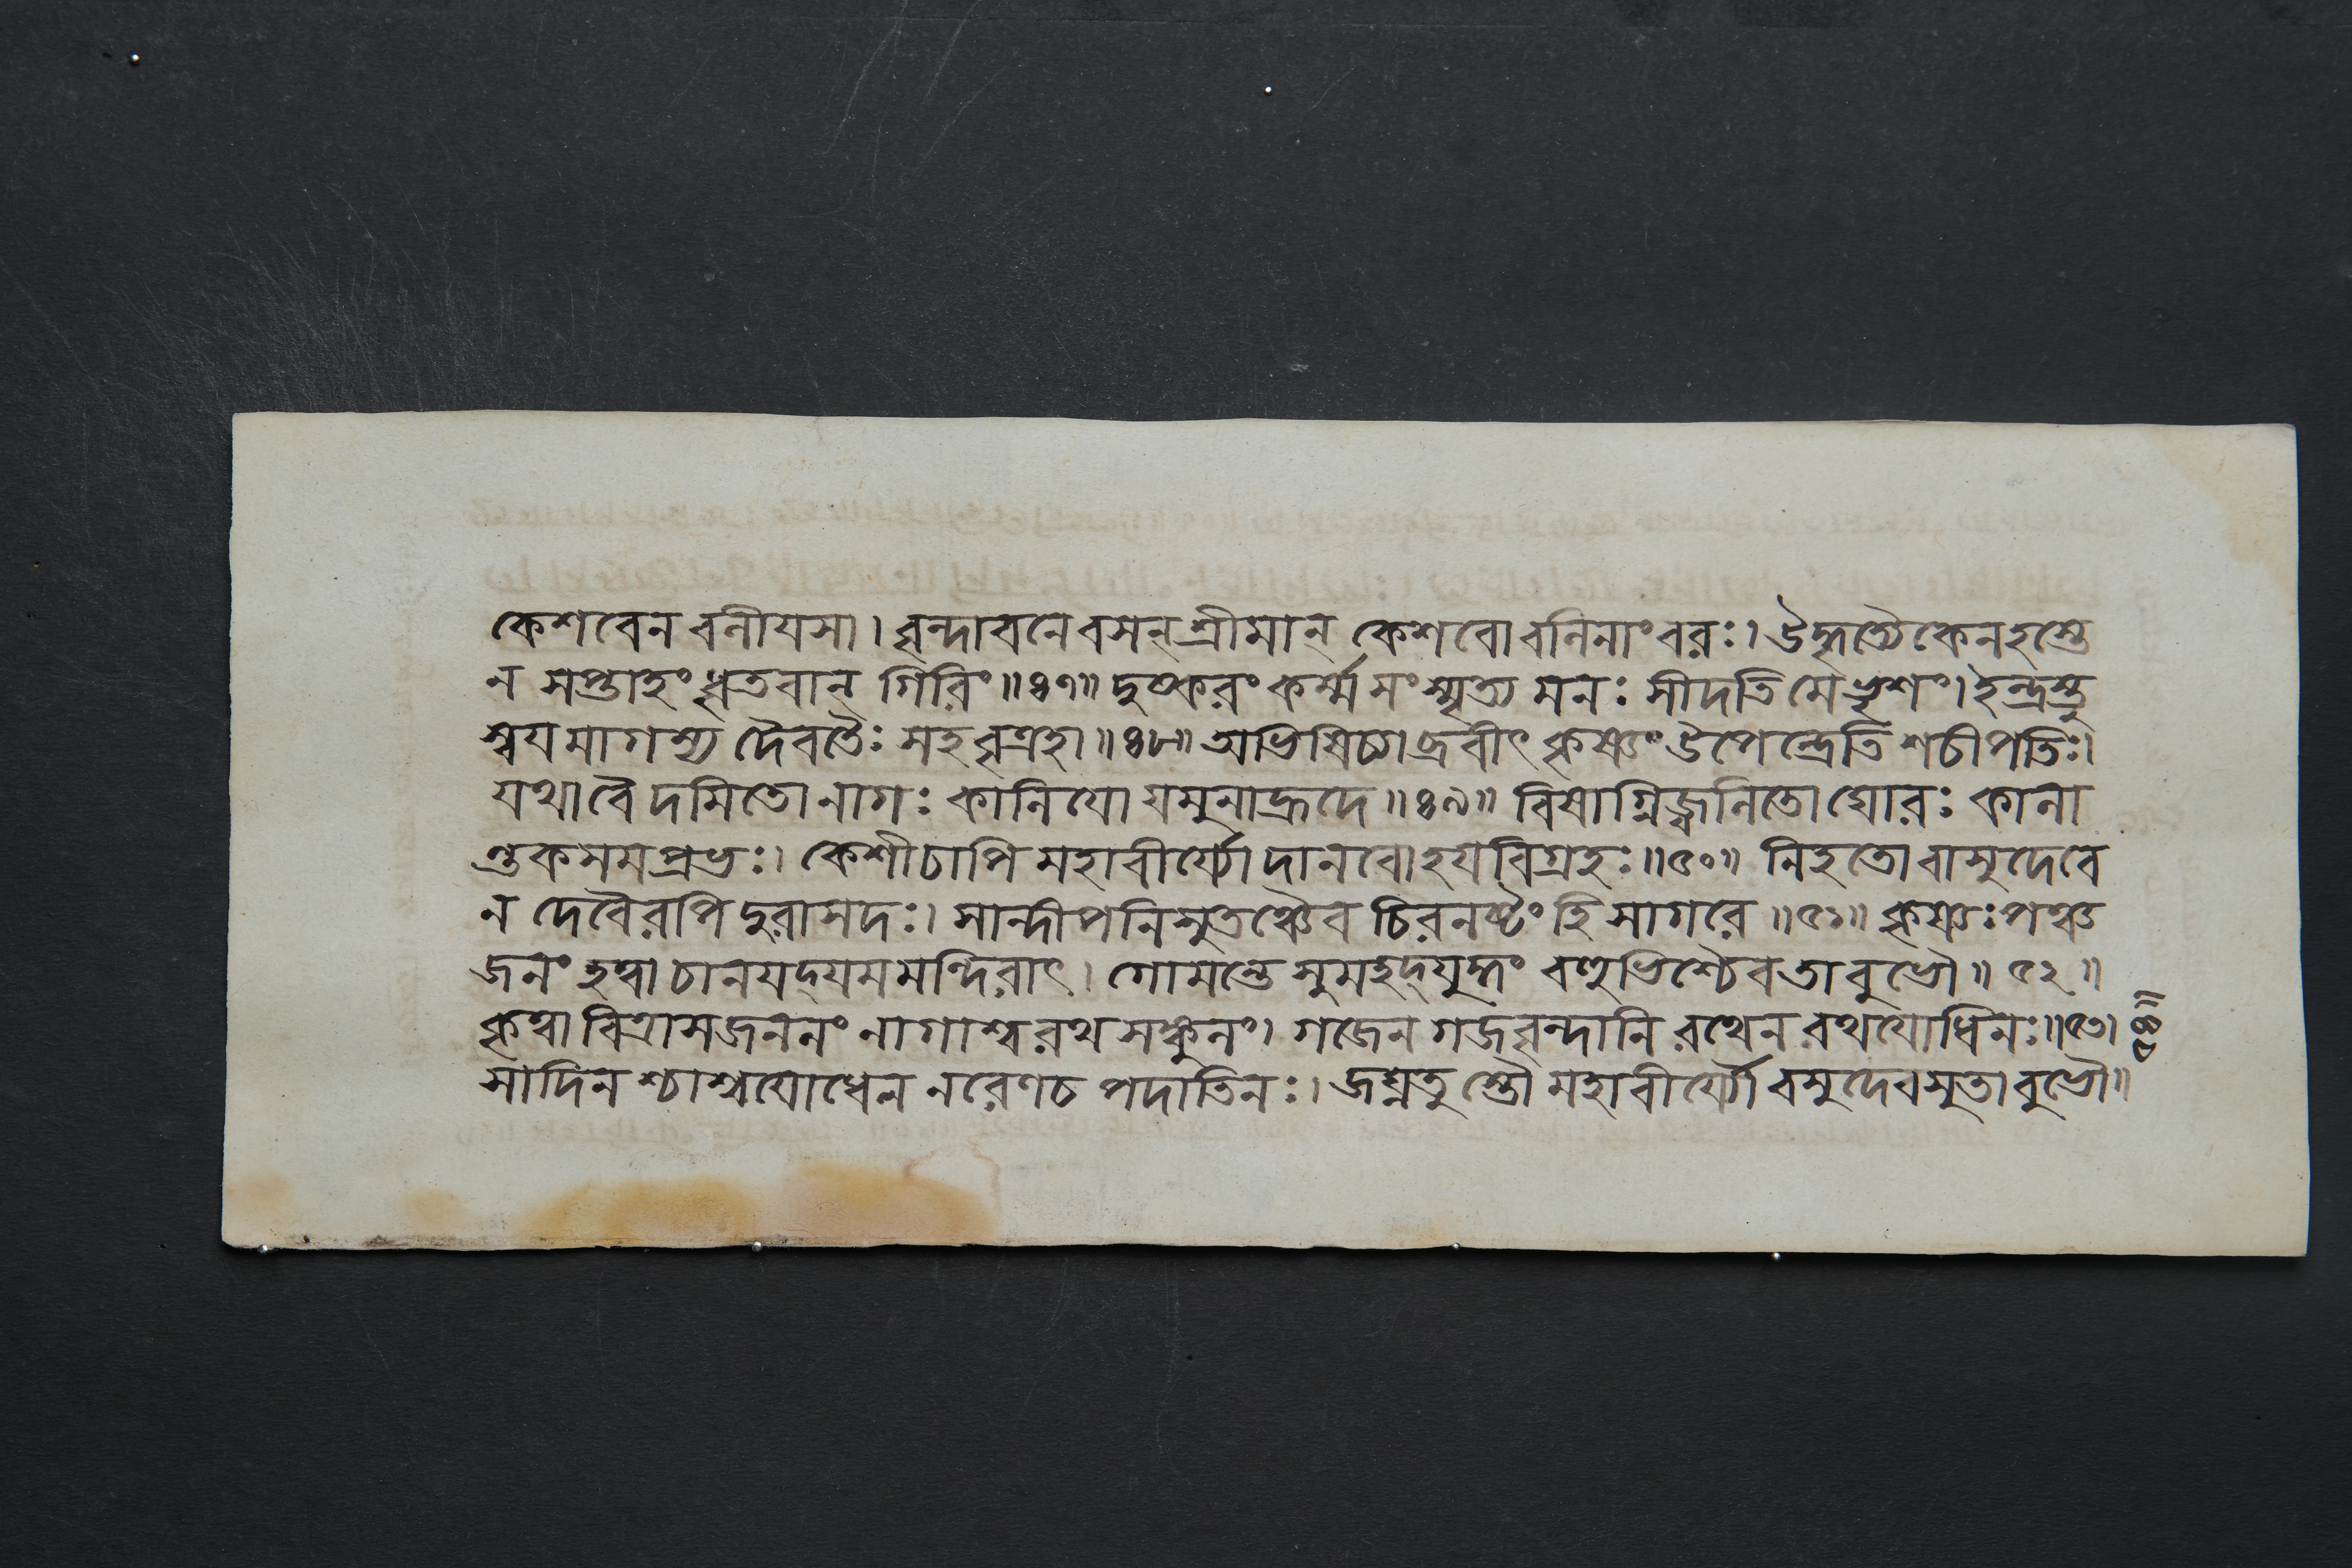 কেশবেন বলীযসা। বৃন্দাবনে বসন্ শ্রীমান্ কেশবো বলিনাং বরঃ। উদ্ধৃত্যৈকেন হস্তে
ন সপ্তাহং ধৃতবান্ গিরিং॥৪৭॥ দুষ্করং কর্ম্ম সংস্মৃত্য মনঃ সীদতি মে ভৃশং। ইন্দ্রস্তু
স্বযমাগম্য দৈবতৈঃ সহ বৃত্রহা॥৪৮॥ অভিষিচ্যাব্রবীৎ কৃষ্ণং উপেন্দ্রেতি শচীপতিঃ।
যথা বৈ দমিতো নাগঃ কালিযো যমুনাহ্রদে॥৪৯॥ বিষাগ্নিজ্বলিতো ঘোরঃ কালা
ন্তকসমপ্রভঃ। কেশী চাপি মহাবীর্য্যো দানবো হযবিগ্রহঃ॥৫০॥ নিহতো বাসুদেবে
ন দেবৈরপি দুরাসদঃ। সান্দীপনিসুতঞ্চৈব চিরনষ্টং হি সাগরে॥৫১॥ কৃষ্ণঃ পঞ্চ
জনং হত্বা চানযদ্যমমন্দিরাৎ। গোমন্তে সুমহদ্যুদ্ধং বহুভিশ্চৈব তাবুভৌ॥ ৫২॥
কৃত্বা বিত্রাসজননং নাগাশ্বরথসঙ্কুলং। গজেন গজবৃন্দানি রথেন রথযোধিনঃ॥৫৩।
সাদিনশ্চাশ্বযোধেন নরেণ চ পদাতিনঃ। জঘ্নতুস্তৌ মহাবীর্য্যৌ বসুদেবসুতাবুভৌ॥
॥৫৪॥